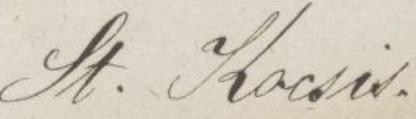 St. Kocsis.